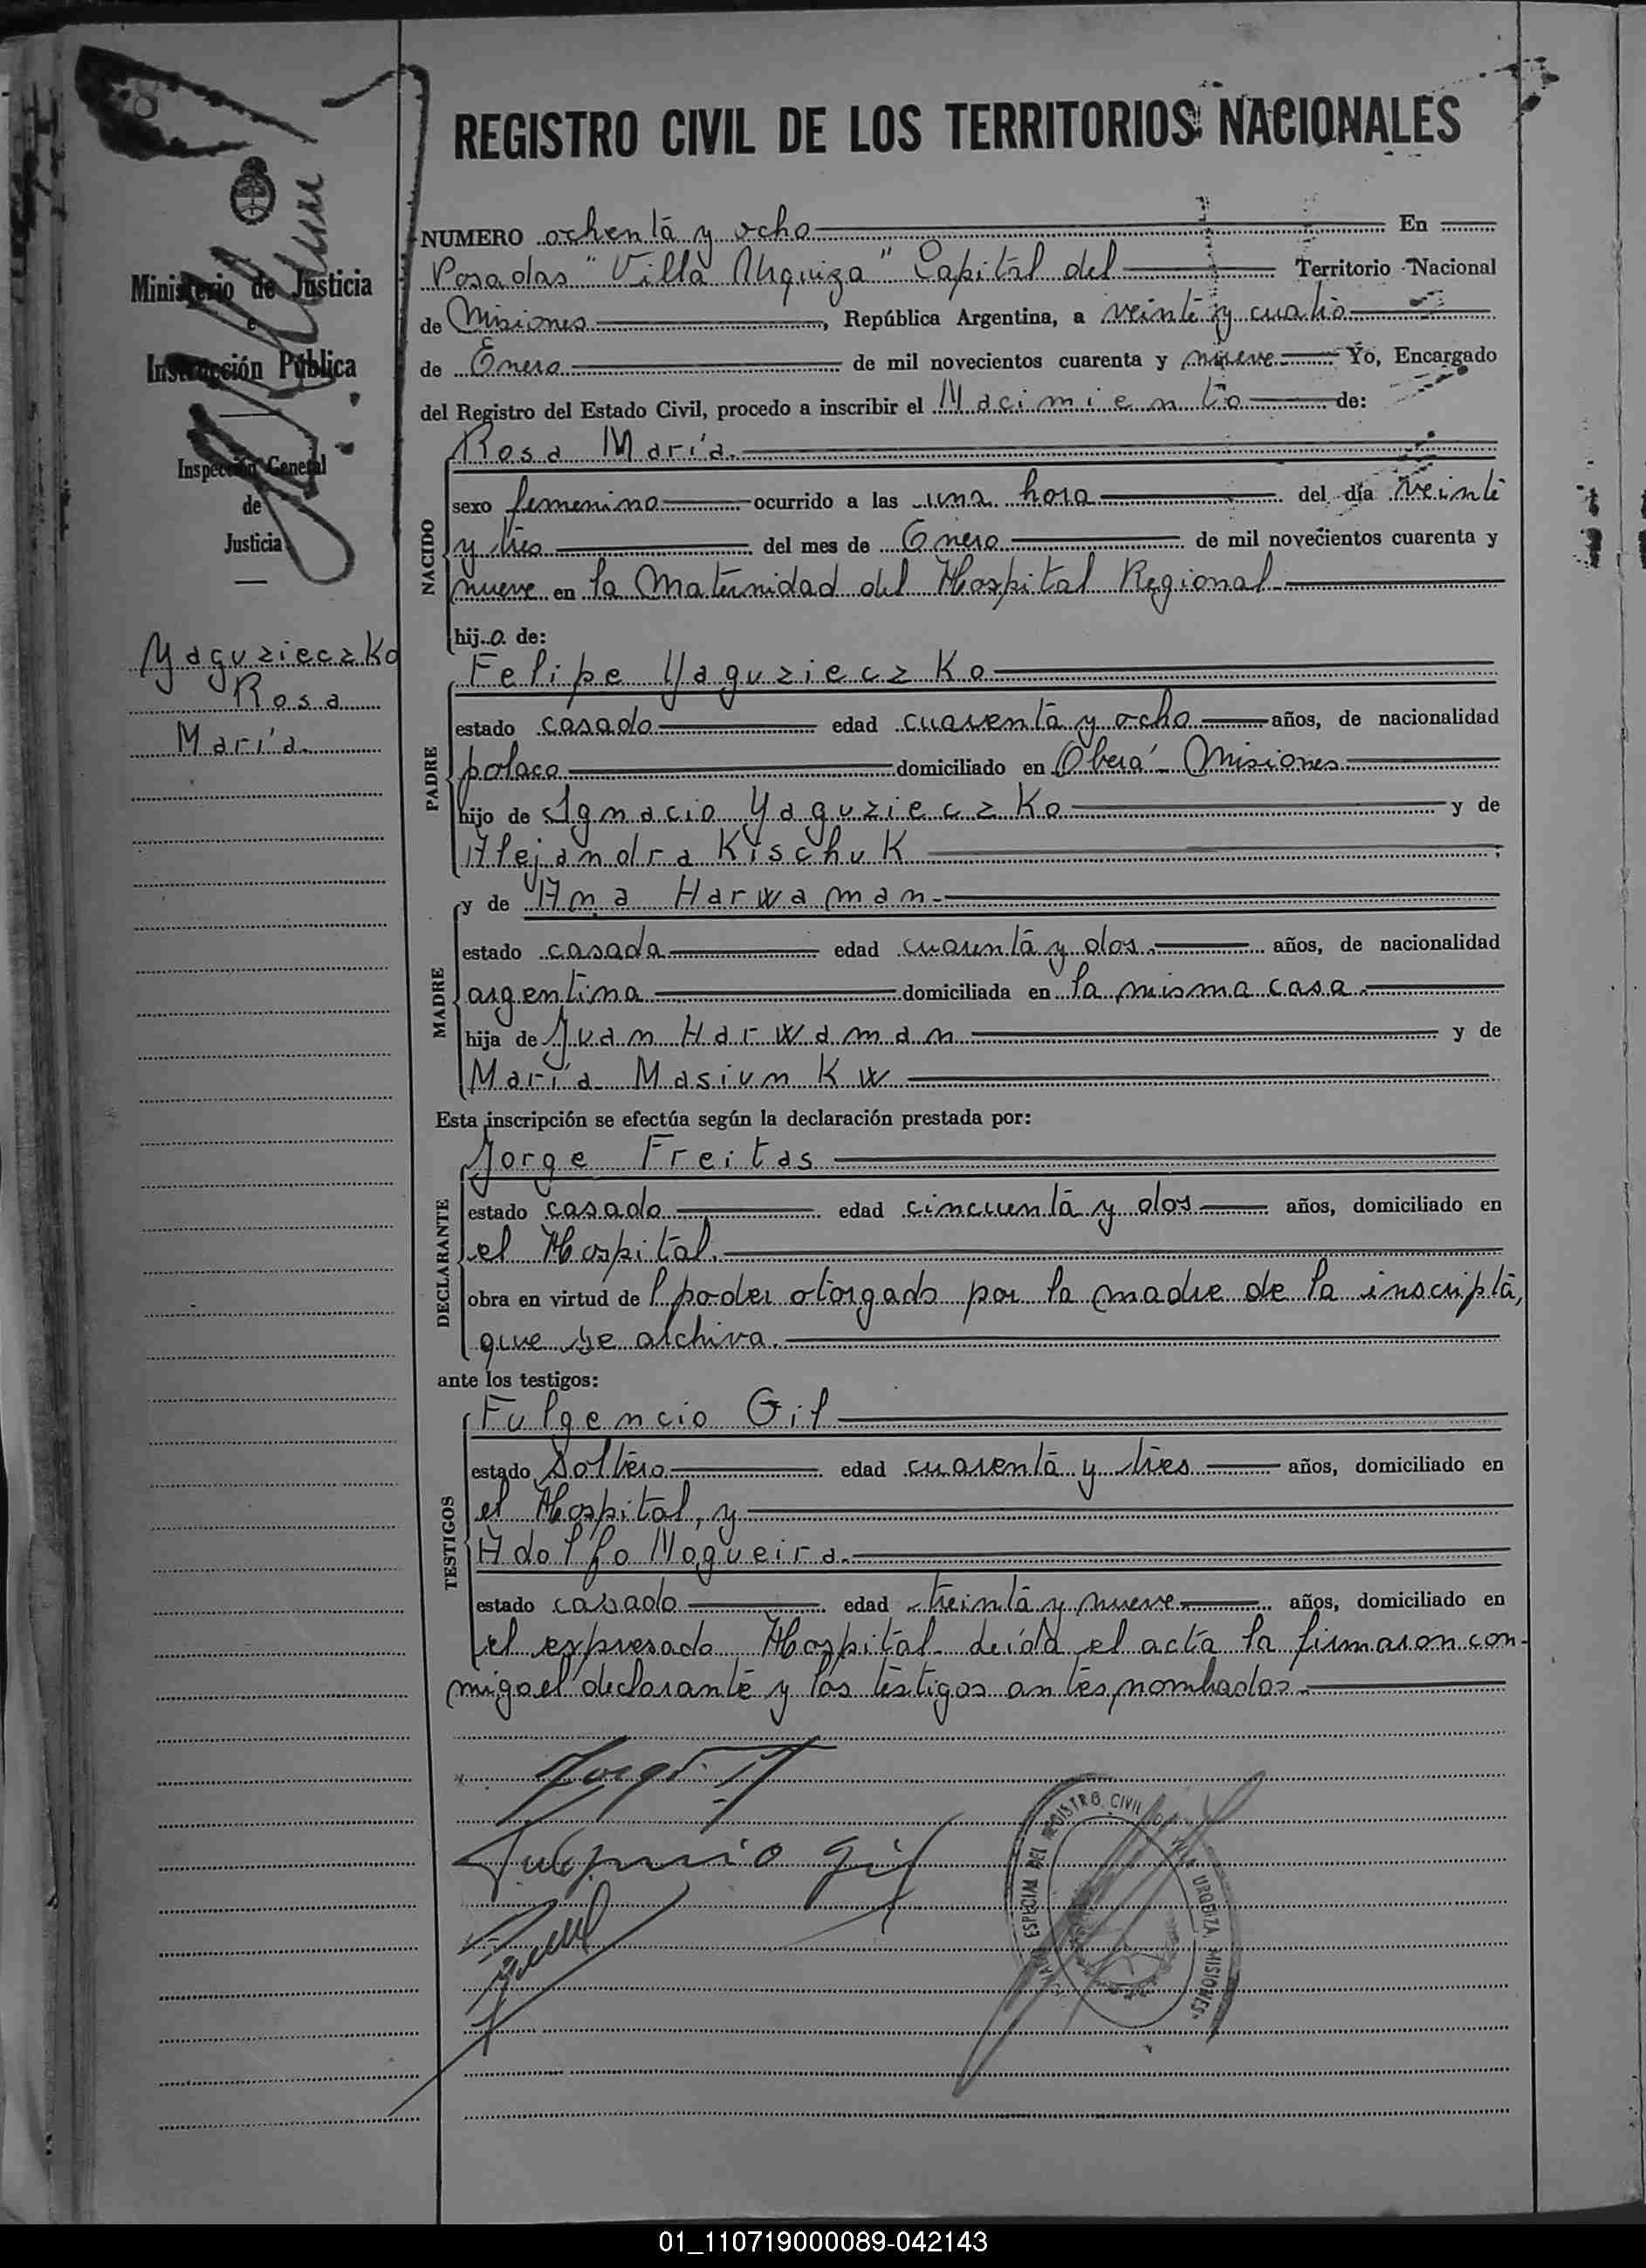 REGISTRO CIVIL DE LOS TERRITORIOS NACIONALES
Ministerio de Justicia
e
Instrucción Pública
Inspección General
de
Justicia
Yaguzieczko
Rosa
María.
NUMERO ochenta y ocho En
Posadas "Villa Urquiza" Capital del Territorio Nacional
de Misiones, República Argentina, a veinte y cuatro
de Enero de mil novecientos cuarenta y nueve Yo, Encargado
del Registro del Estado Civil, procedo a inscribir el Nacimiento de:
NACIDO
Rosa María.
sexo femenino ocurrido a las una hora del día veinte
y tres del mes de Enero de mil novecientos cuarenta y
nueve en la Maternidad del Hospital Regional
hij.a de:
PADRE
Felipe Yaguzieczko
estado casado edad cuarenta y ocho años, de nacionalidad
polaco domiciliado en Oberá - Misiones
hijo de Ignacio Yaguzieczko y de
Alejandra Kischuk ;
MADRE
y de Ana Harwaman.
estado casada edad cuarenta y dos. años, de nacionalidad
argentina domiciliada en la misma casa.
hija de Juan Harwaman y de
María Masiunkw
Esta inscripción se efectúa según la declaración prestada por:
DECLARANTE
Jorge Freitas
estado casado edad cincuenta y dos años, domiciliado en
el Hospital.
obra en virtud de l poder otorgado por la madre de la inscripta,
que se archiva.
ante los testigos:
TESTIGOS
Fulgencio Gil
estado Soltero edad cuarenta y tres años, domiciliado en
el Hospital, y
Adolfo Nogueira.
estado casado edad treinta y nueve años, domiciliado en
el expresado Hospital. Leída el acta la firmaron con-
migo el declarante y los testigos antes nombrados.
Fulgencio Gil
ESPECIAL DEL REGISTRO CIVIL DE VILLA URQUIZA MISIONES
01_110719000089-042143